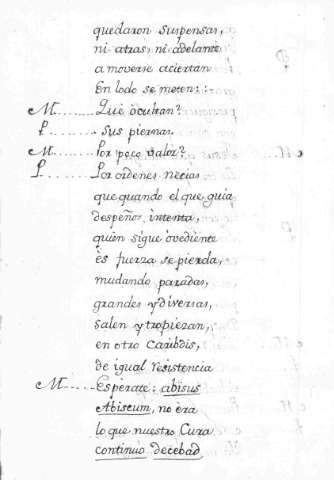 quedaron suspensas,
ni atras, ni adelante
a moverse aciertan
En lodo se meten::
M......... Què ocultan?
P. ......... Sus piernas.
M......... Por poco valor?
P. ......... Por ordenes necias
que quando el que guia
despeños intenta,
quien sigue ovediente
ès fuerza se pierda,
mudando paradas,
grandes y diversas,
salen y tropiezan,
en otro Caribdis,
de igual resistencia
M......... Espèrate: abisus
Abiscum, no era
lo que nuestro Cura
continuò decebad